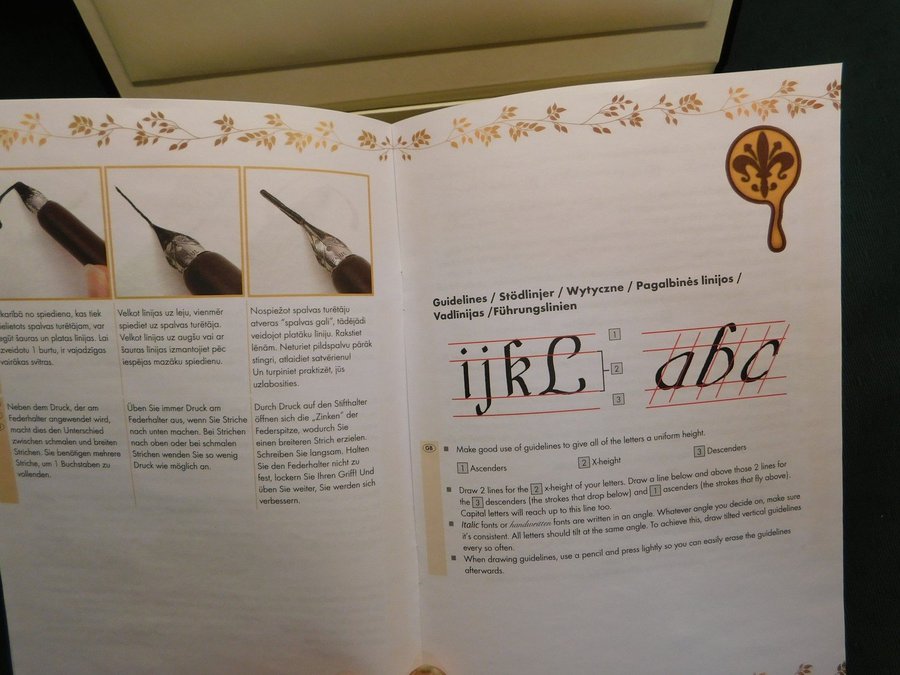 karībā no spiediena, kas tiek
pielietots spalvas turētājam, var
iegūt šauras un platas līnijas. Lai
izveidotu 1 burtu, ir vajadzīgas
vairākas svītras.
Velkot līnijas uz leju, vienmēr
spiediet uz spalvas turētāja.
Velkot līnijas uz augšu vai ar
šauras līnijas izmantojiet pēc
iespējas mazāku spiedienu.
Nospiežot spalvas turētāju
atveras “spalvas gali”, tādējādi
veidojot platāku līniju. Rakstiet
lēnām. Neturiet pildspalvu pārāk
stingri, atlaidiet satvērienu!
Un turpiniet praktizēt, jūs
uzlabosities.
Neben dem Druck, der am
Federhalter angewendet wird,
macht dies den Unterschied
zwischen schmalen und breiten
Strichen. Sie benötigen mehrere
Striche, um 1 Buchstaben zu
vollenden.
Üben Sie immer Druck am
Federhalter aus, wenn Sie Striche
nach unten machen. Bei Strichen
nach oben oder bei schmalen
Strichen wenden Sie so wenig
Druck wie möglich an.
Durch Druck auf den Stifthalter
öffnen sich die „Zinken” der
Federspitze, wodurch Sie
einen breiteren Strich erzielen.
Schreiben Sie langsam. Halten
Sie den Federhalter nicht zu
fest, lockern Sie Ihren Griff! Und
üben Sie weiter, Sie werden sich
verbessern.
Guidelines / Stödlinjer / Wytyczne / Pagalbinės linijos /
Vadlīnijas /Führungslinien
ijkL
1
2
3
abc
GB
Make good use of guidelines to give all of the letters a uniform height.
1 Ascenders
2 X-height
3 Descenders
Draw 2 lines for the 2 x-height of your letters. Draw a line below and above those 2 lines for
the 3 descenders (the strokes that drop below) and 1 ascenders (the strokes that fly above).
Capital letters will reach up to this line too.
Italic fonts or handwritten fonts are written in an angle. Whatever angle you decide on, make sure
it's consistent. All letters should tilt at the same angle. To achieve this, draw tilted vertical guidelines
every so often.
When drawing guidelines, use a pencil and press lightly so you can easily erase the guidelines
afterwards.